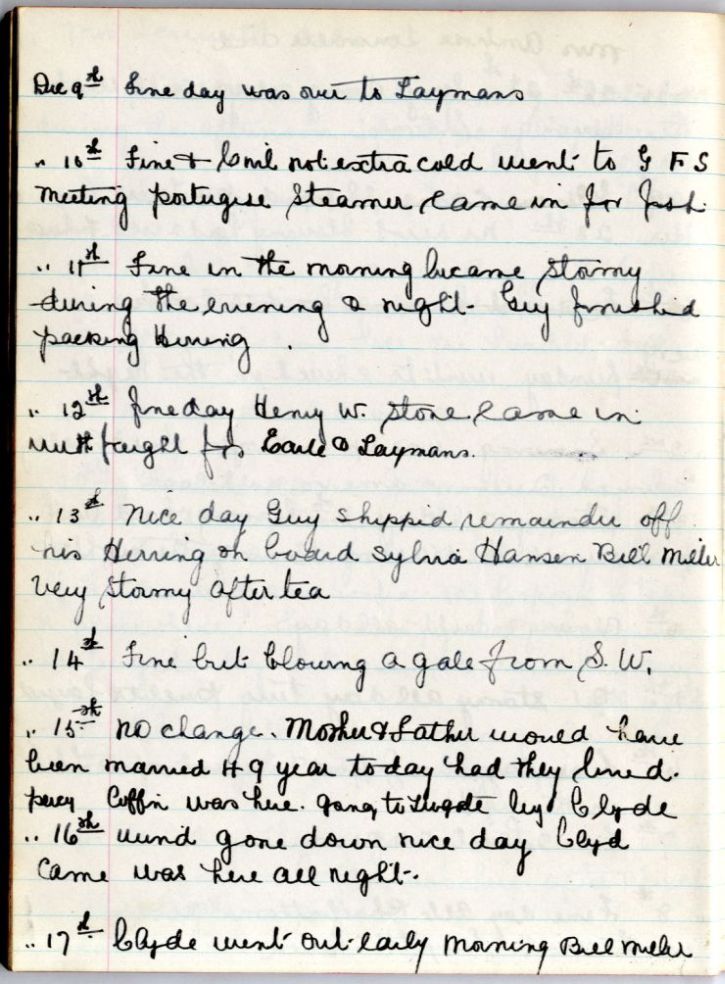 Dec 9th Fine day was over to Laymans
" 10th Fine & Civil not extra cold went to G F S
meeting portugise Steamer came in for fish.
" 11th Fine in the morning became stormy
during the evening & night. Guy finished
packing Herring.
" 12th fine day Henry W. Stone came in
with freight for Earle & Laymans.
" 13th Nice day Guy shipped remainder off
his Herring on board Sylvia Hansen Bill Miller
Very stormy after tea
" 14th Fine but blowing a gale from S. W.
" 15th no change. Mother & Father would have
been married 49 year today had they lived.
percy Coffin was here. going to by Clyde
" 16th wind gone down nice day Clyd
came was here all night.
" 17th Clyde went out early morning Bill Miller